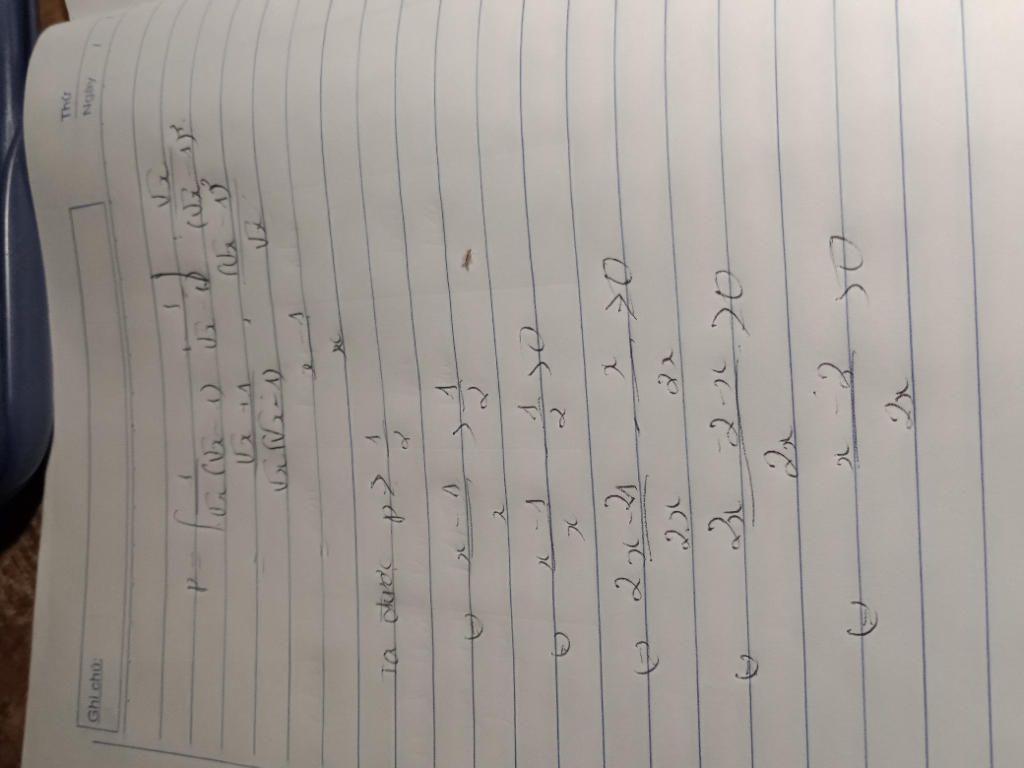 Thứ
Ngày
Ghi chú:
P = [1/(√x(√x - 1)) + 1/(√x - 1)] : √x/(√x - 1)²
= (√x + 1)/(√x(√x - 1)) . (√x - 1)²/√x
= (x - 1)/x
Ta được P > 1/2
(=) (x - 1)/x > 1/2
(=) (x - 1)/x - 1/2 > 0
(=) (2x - 2)/2x - x/2x > 0
(=) (2x - 2 - x)/2x > 0
(=) (x - 2)/2x > 0